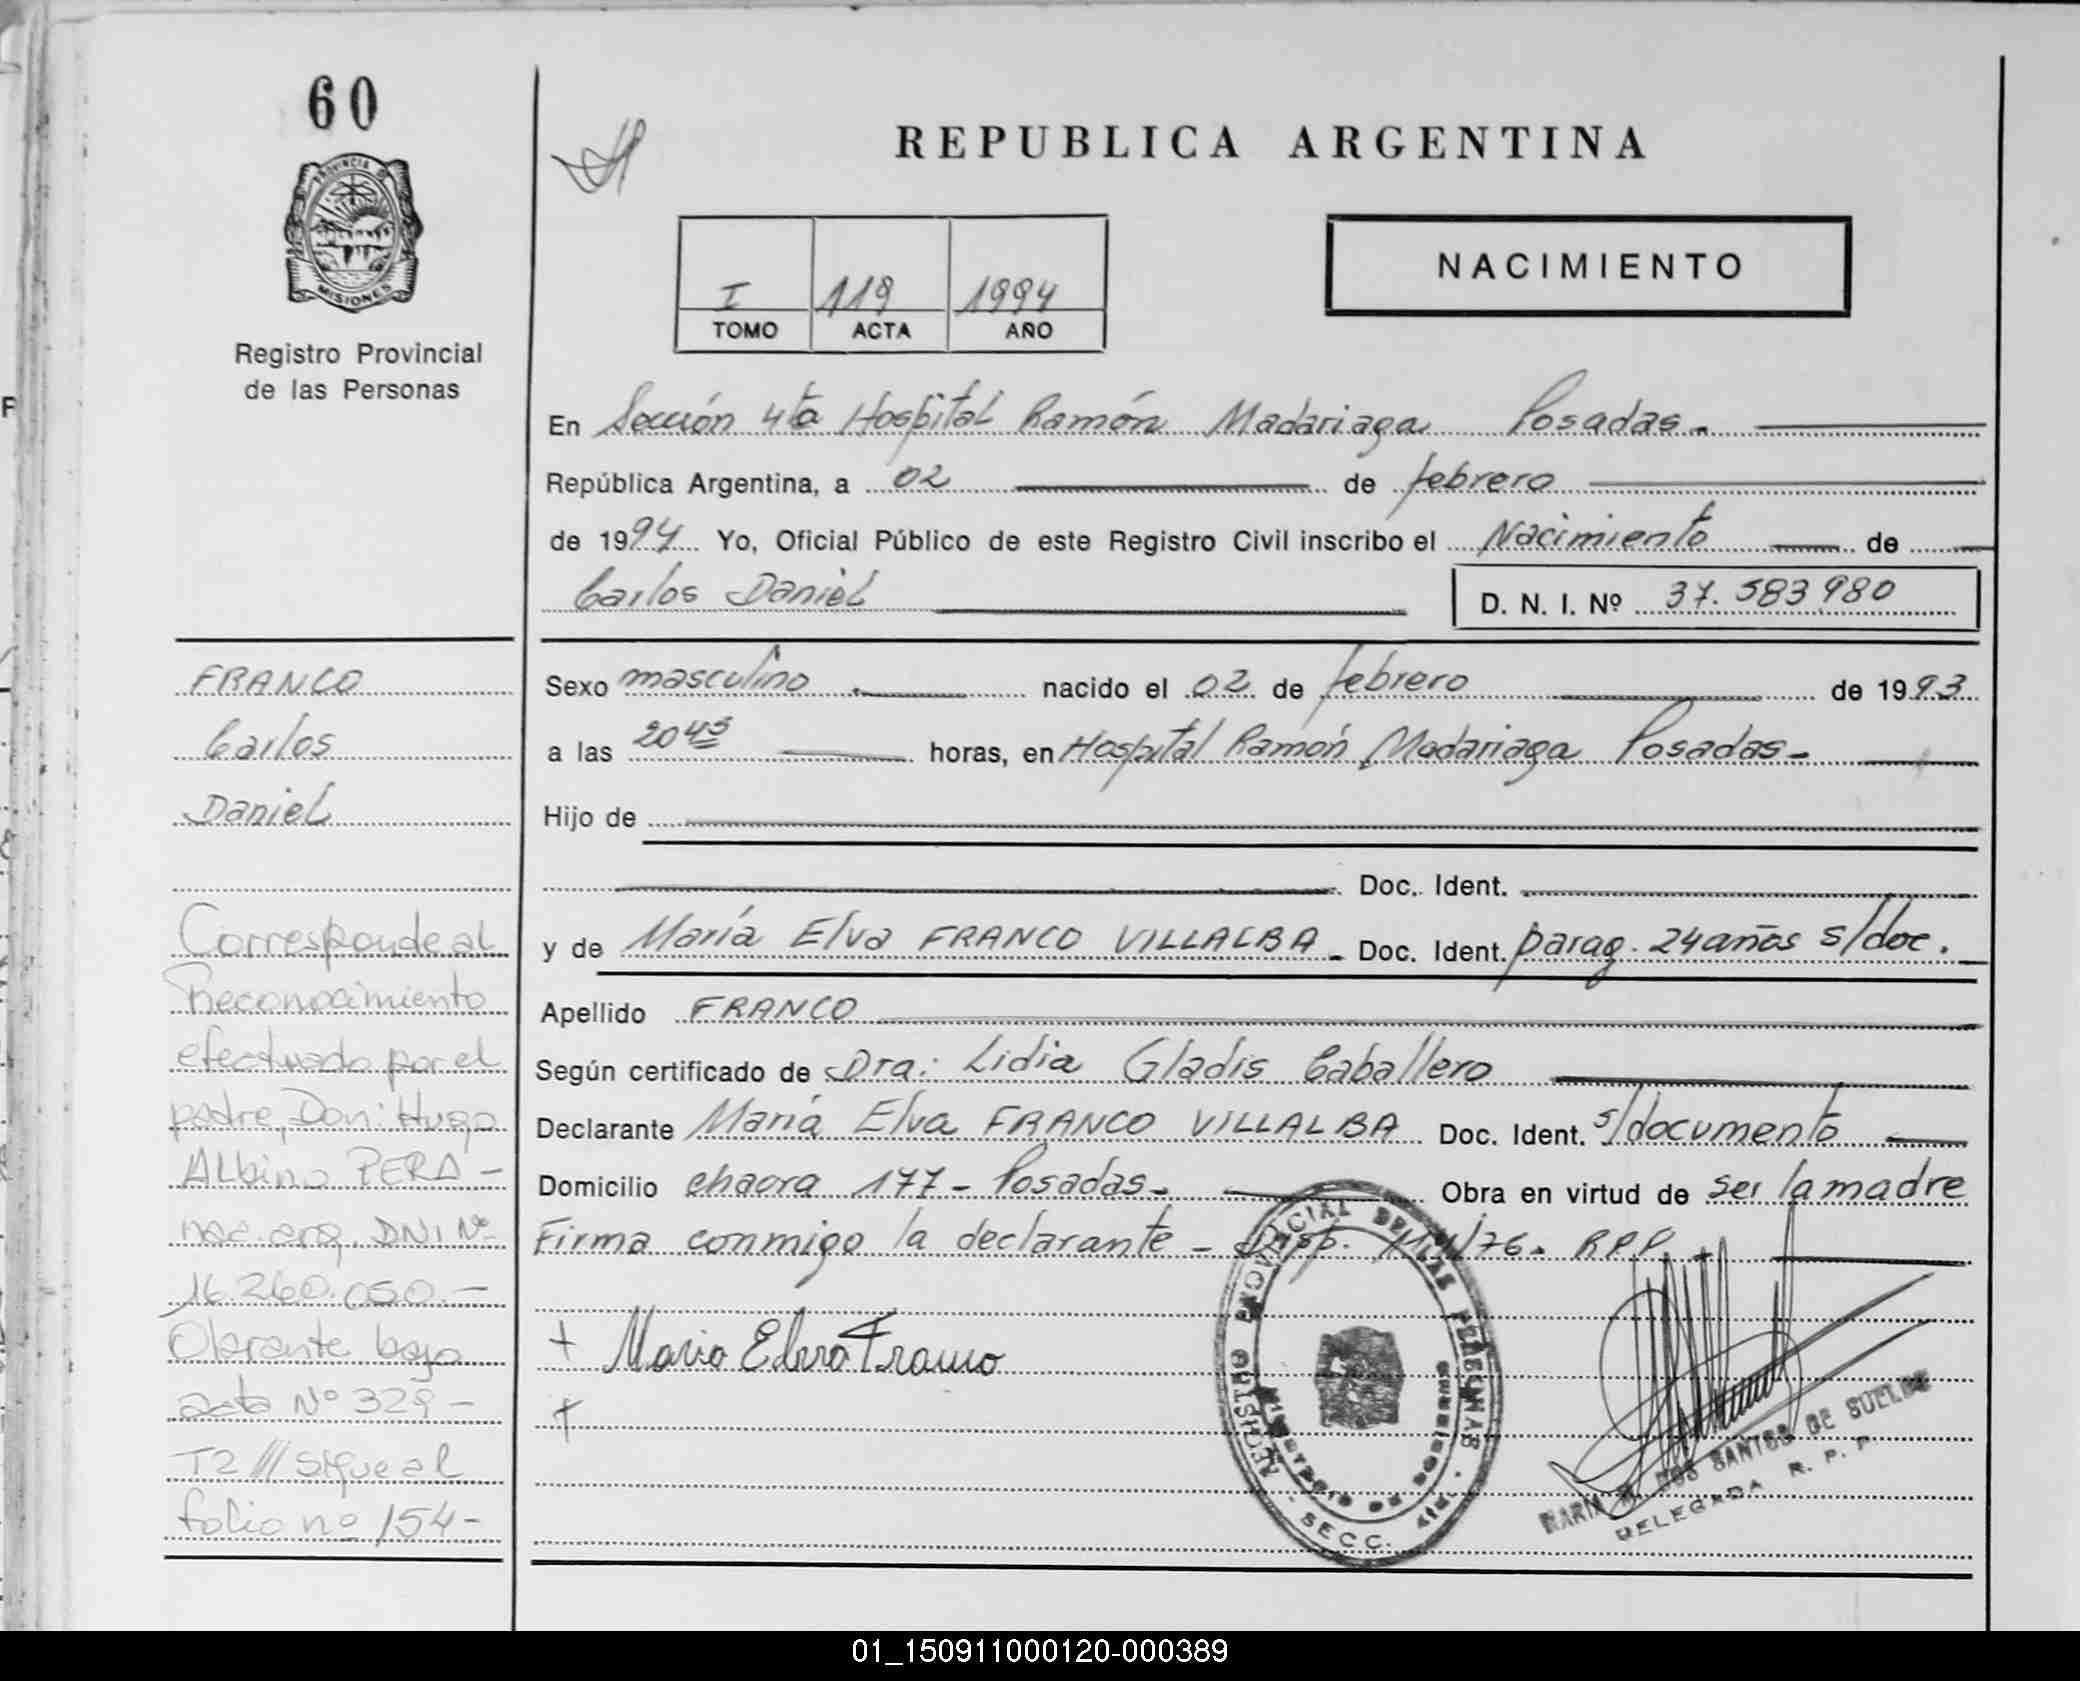 60
PROVINCIA DE
MISIONES
Registro Provincial
de las Personas
FRANCO
Carlos
Daniel
Corresponde al
Reconocimiento
efectuado por el
padre, Don: Hugo
Albino PERA -
nac. arg. DNI Nº
16.260.050.-
Obrante bajo
acta Nº 329 -
T2 /// sigue al
folio nº 154-
REPUBLICA ARGENTINA
I 119 1994
TOMO ACTA AÑO
NACIMIENTO
En Sección 4ta Hospital Ramón Madariaga Posadas.
República Argentina, a 02 de febrero
de 1994 Yo, Oficial Público de este Registro Civil inscribo el Nacimiento de
Carlos Daniel D. N. I. Nº 37.583.980
Sexo masculino nacido el 02 de febrero de 1993
a las 20 45 horas, en Hospital Ramón Madariaga Posadas-
Hijo de
Doc. Ident.
y de María Elva FRANCO VILLALBA - Doc. Ident. parag. 24 años s/doc.
Apellido FRANCO
Según certificado de Dra: Lidia Gladis Caballero
Declarante María Elva FRANCO VILLALBA Doc. Ident. s/documento
Domicilio chacra 177 - Posadas- Obra en virtud de ser la madre
Firma conmigo la declarante - Disp. /76. RPP
+ Maria Elva Franco
+
REGISTRO PROVINCIAL DE LAS PERSONAS
MINISTERIO DE GOBIERNO
- SECC. 4ta. -
MARIA DOS SANTOS DE SUELDO
DELEGADA R. P. P.
01_150911000120-000389